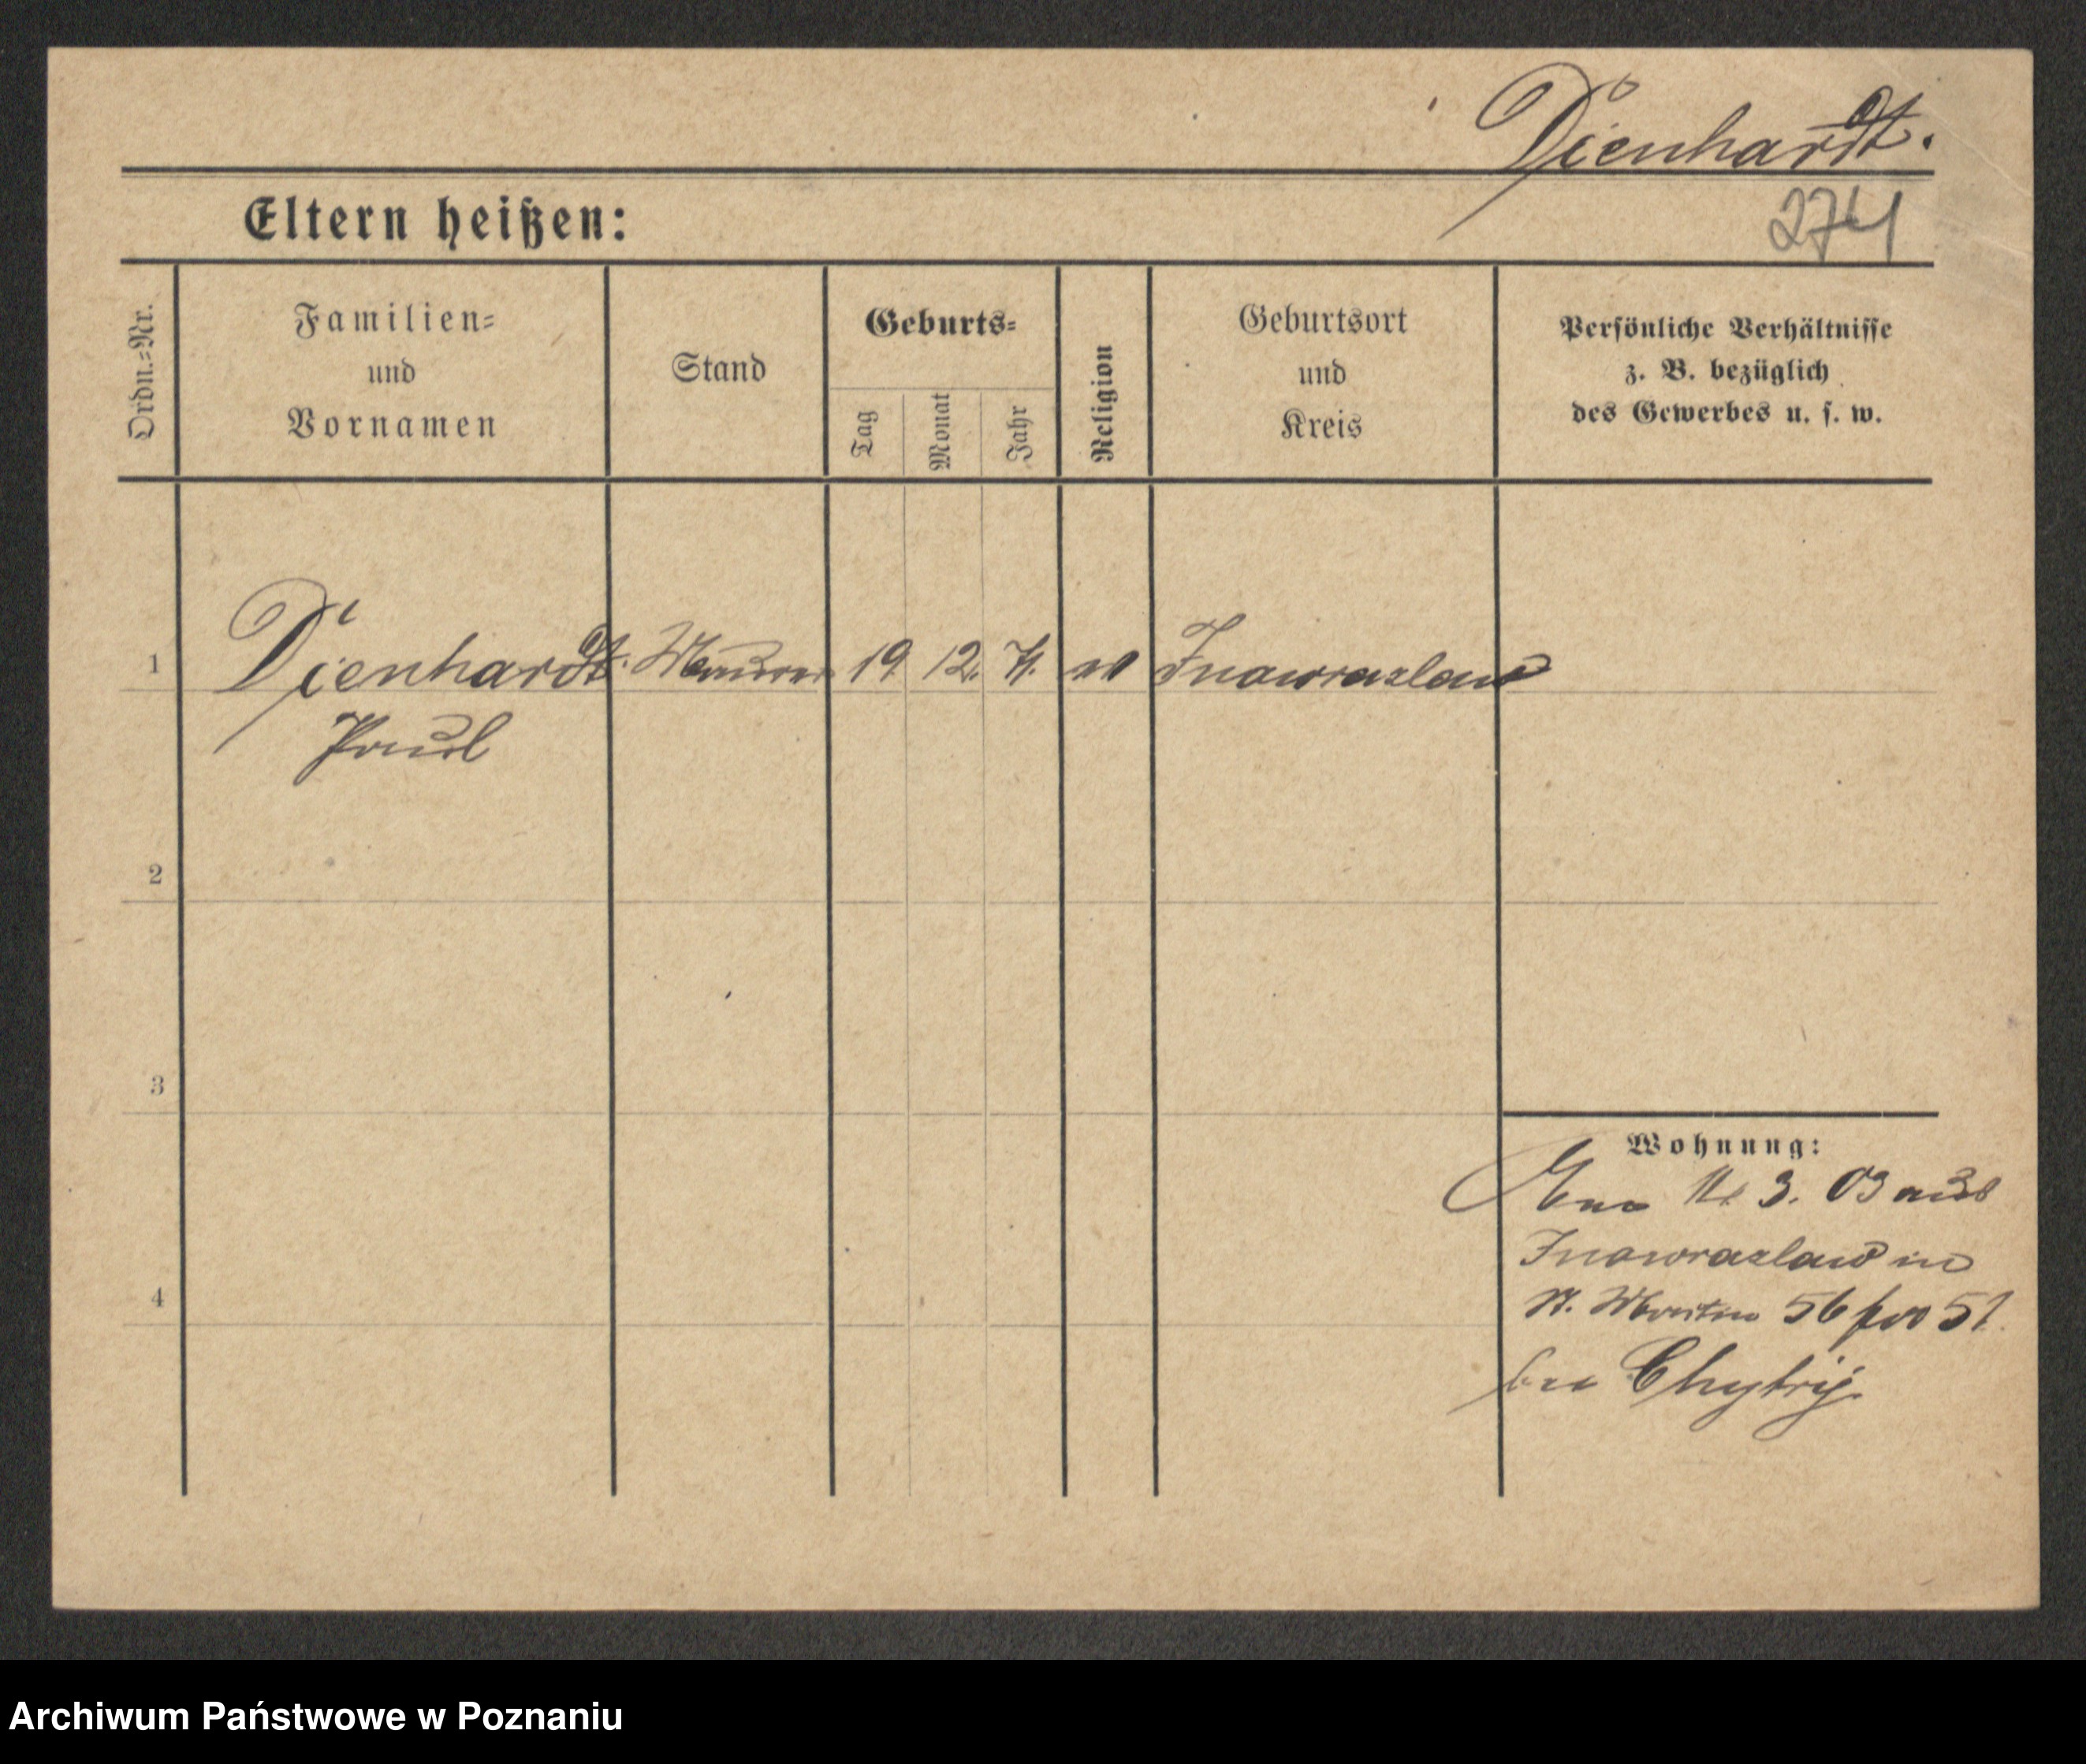 Dienhardt.
274
Eltern heißen:
Ordn.=Nr.
Familien=
und
Vornamen
Stand
Geburts=
Tag
Monat
Jahr
Religion
Geburtsort
und
Kreis
Persönliche Verhältnisse
z. B. bezüglich
des Gewerbes u. s. w.
1 Dienhardt. Maurer 19. 12. Inowrazlaw
Paul
2
3
4
Wohnung:
3. 03 aus
Inowrazlaw in
St. Martin 56 fr 51.
bei Chytry
Archiwum Państwowe w Poznaniu